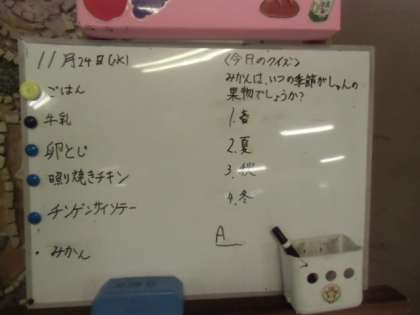 11月24日(火)
ごはん
牛乳
卵とじ
照り焼きチキン
チンゲンサイソテー
みかん
〈今日のクイズ〉
みかんは、いつの季節がしゅんの
果物でしょうか?
1. 春
2. 夏
3. 秋
4. 冬
A